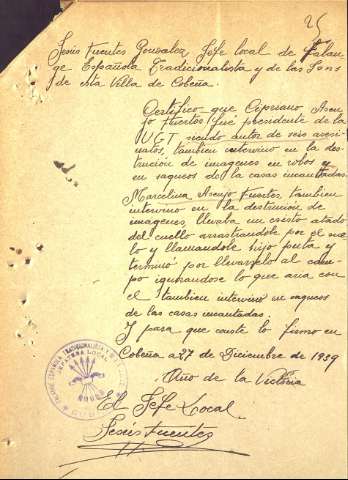 25
Jesús Fuentes Gonzalez, Jefe local de Falan
ge Española Tradicionalista y de las Jons
de esta Villa de Cobeña.
Certifico que Cipriano Asen
jo Fuertes fué presidente de la
UGT siendo autor de seis asesi
natos, tambien intervino en la des
trucion de imagenes en robos y
en saqueos de la casas incautadas.
Marcelina Asenjo Fuertes tambien
intervino en la destrucion de
imagenes, llevaba un cristo atado
del cuello arrastrandole por el sue
lo y llamandole hijo puta y
termino por llevarselo al cam
po ignorandose lo que aria con
el tambien intervino en saqueos
de las casas incautadas
Y para que conste lo firmo en
Cobeña a 27 de Diciembre de 1939
Año de la Victoria
El Jefe Local
Jesús Fuentes
FALANGE ESPAÑOLA TRADICIONALISTA Y DE LAS
JEFATURA LOCAL
COBEÑA